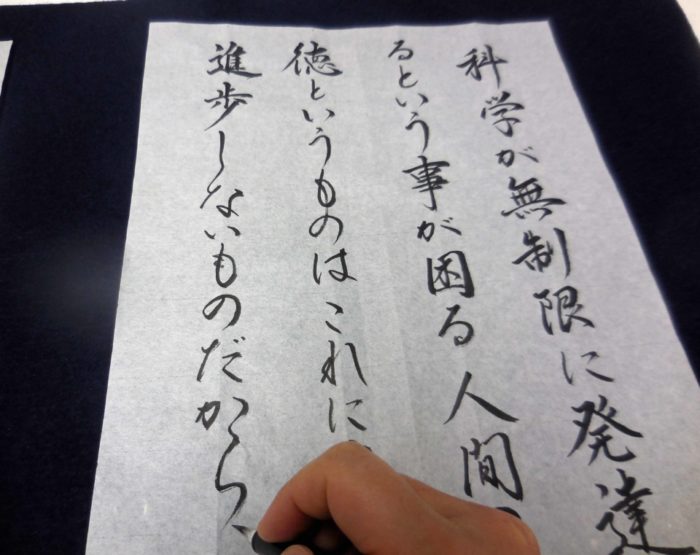 科学が無制限に発達
るという事が困る人間
徳というものはこれに
進歩しないものだから、